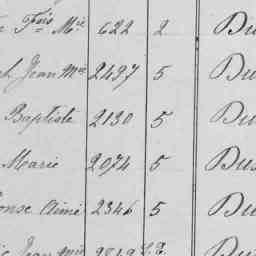 Fois Mie 622 2 Du
h Jean Mie 2437 5 Du
Baptiste 2130 5 Du
Marie 2074 5 Dus
onse Aimé 2346 5 Du
Jean 5.2. Du